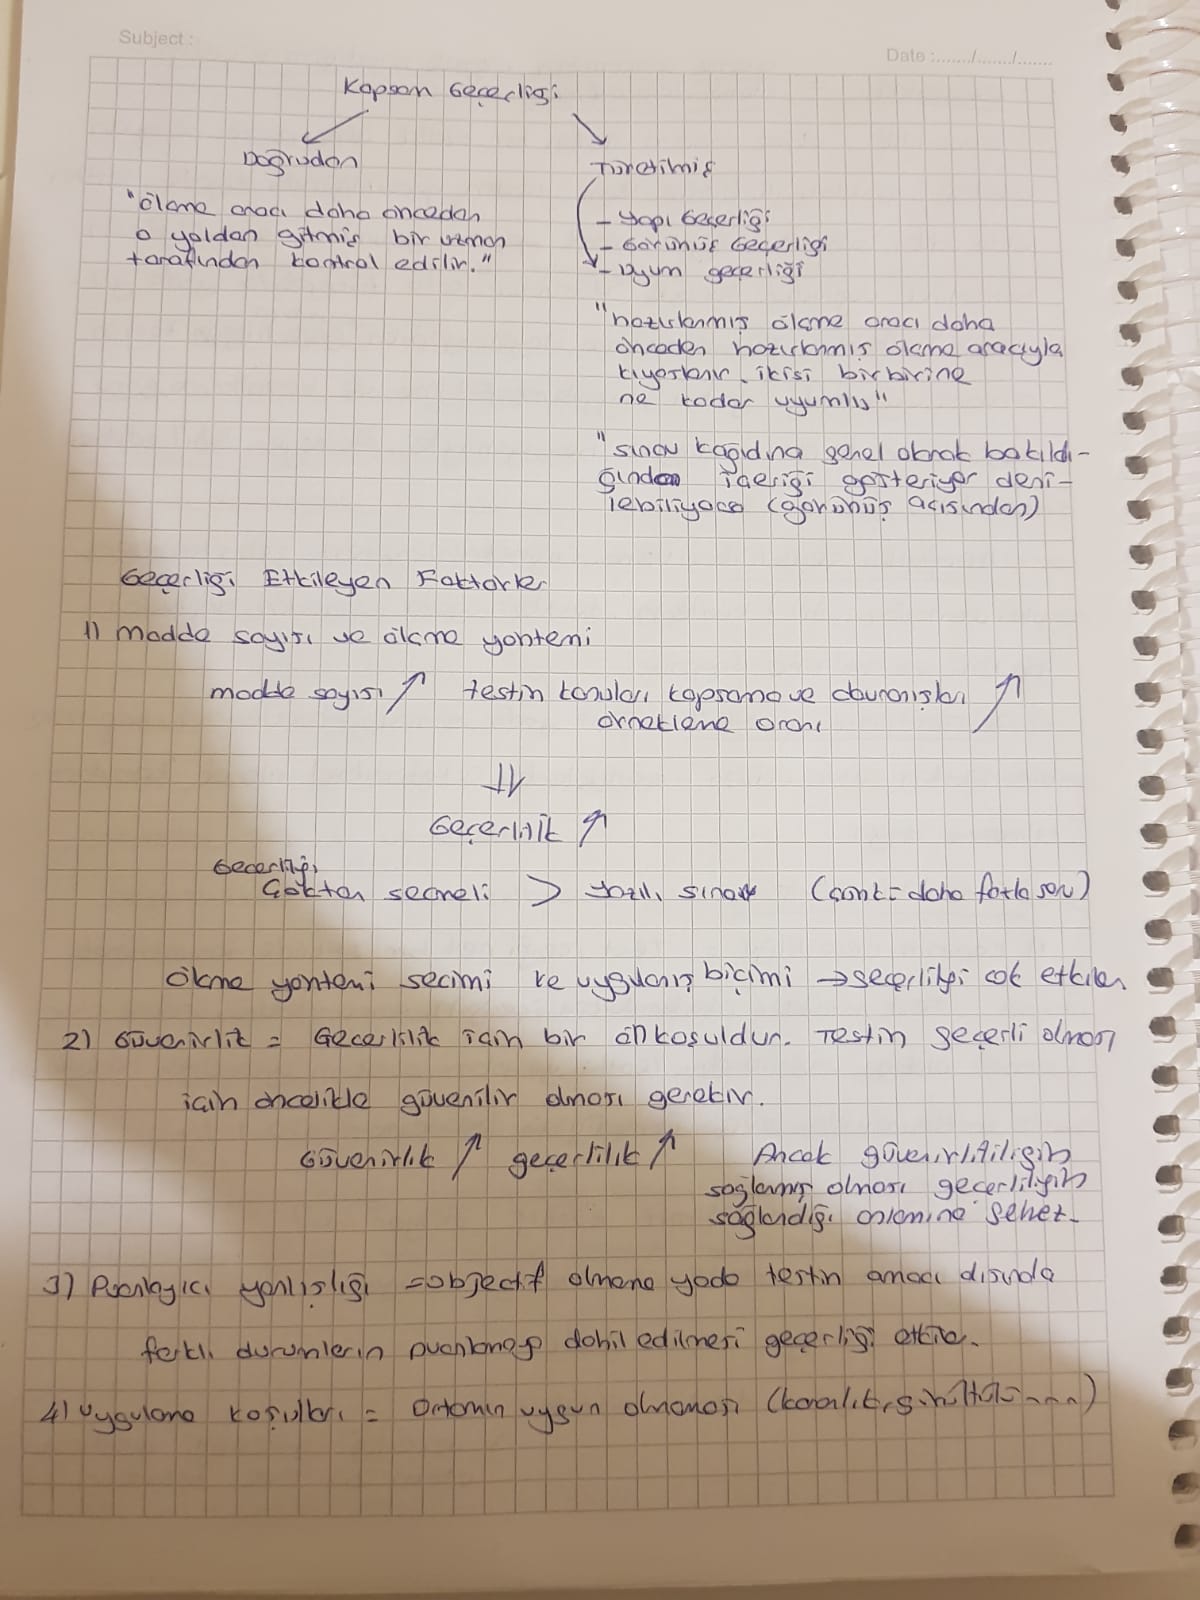 Subject :
Date :......./......./.......
Kapsam Geçerliği
Doğrudan
Türetilmiş
"ölçme aracı daha önceden
o yoldan gitmiş bir uzman
tarafından kontrol edilir."
- Yapı Geçerliği
- Görünüş Geçerliği
- Uyum geçerliği
"hazırlanmış ölçme aracı daha
önceden hazırlanmış ölçme aracıyla
kıyaslanır. ikisi birbirine
ne kadar uyumlu"
"sınav kağıdına genel olarak bakıldı-
ğından içeriği gösteriyor deni-
lebiliyorsa (görünüş açısından)
Geçerliği Etkileyen Faktörler
1) madde sayısı ve ölçme yöntemi
madde sayısı ↑ testin konuları kapsama ve davranışları ↑
örnekleme oranı
⇓
Geçerlilik ↑
Geçerliliği
Çoktan seçmeli > Yazılı sınav (çünkü daha fazla soru)
Ölçme yöntemi seçimi ve uygulanış biçimi → geçerliliği çok etkiler
2) Güvenirlik = Geçerlilik için bir önkoşuldur. Testin geçerli olması
için öncelikle güvenilir olması gerekir.
Güvenirlik ↑ geçerlilik ↑
Ancak
sağlanmış olması geçerliliğin
sağlandığı anlamına gelmez.
3) Puanlayıcı yanlışlığı = objectif olmama yada testin amacı dışında
farklı durumların puanlamaya dahil edilmesi geçerliği etkiler.
4) Uygulama koşulları = Ortamın uygun olmaması (karanlık, gürültülü....)